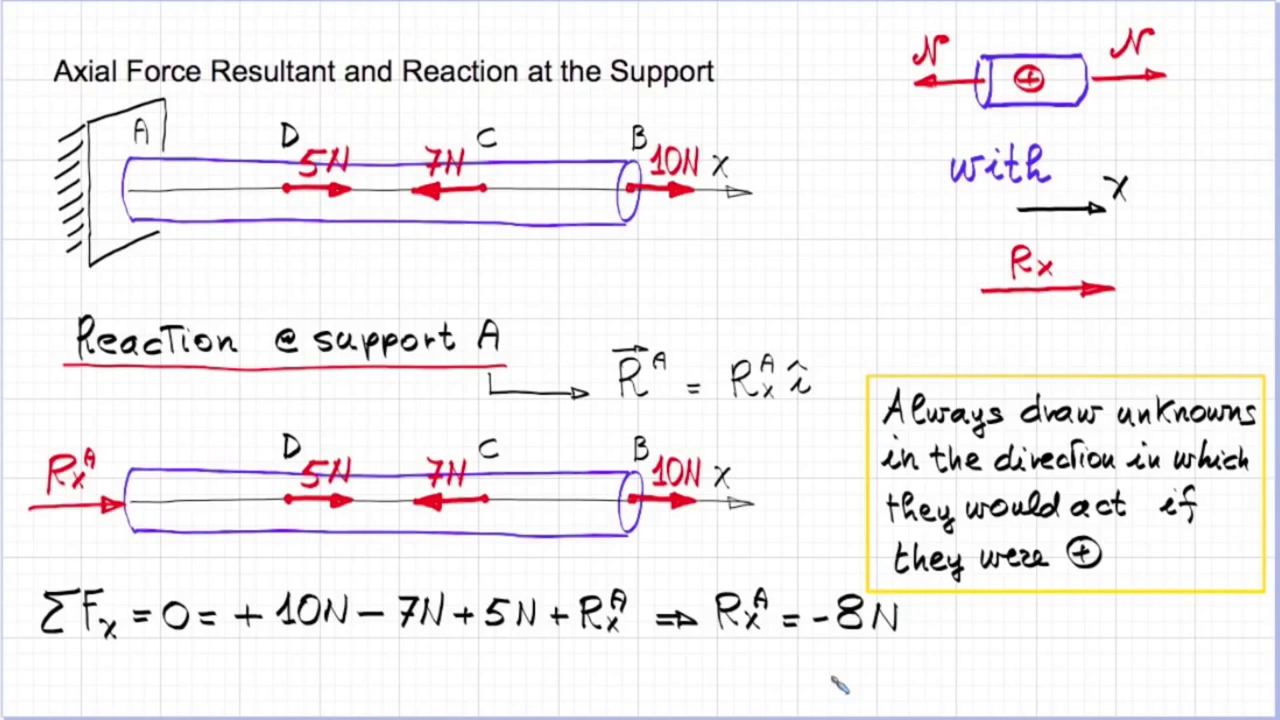 Axial Force Resultant and Reaction at the Support
N N
+
A D C B
5N 7N 10N x
with
x
Rx
Reaction @ support A
R^A = Rx^A î
Always draw unknowns
in the direction in which
they would act if
they were ⊕
D C B
Rx^A 5N 7N 10N x
ΣFx = 0 = + 10N − 7N + 5N + Rx^A ⇒ Rx^A = -8N